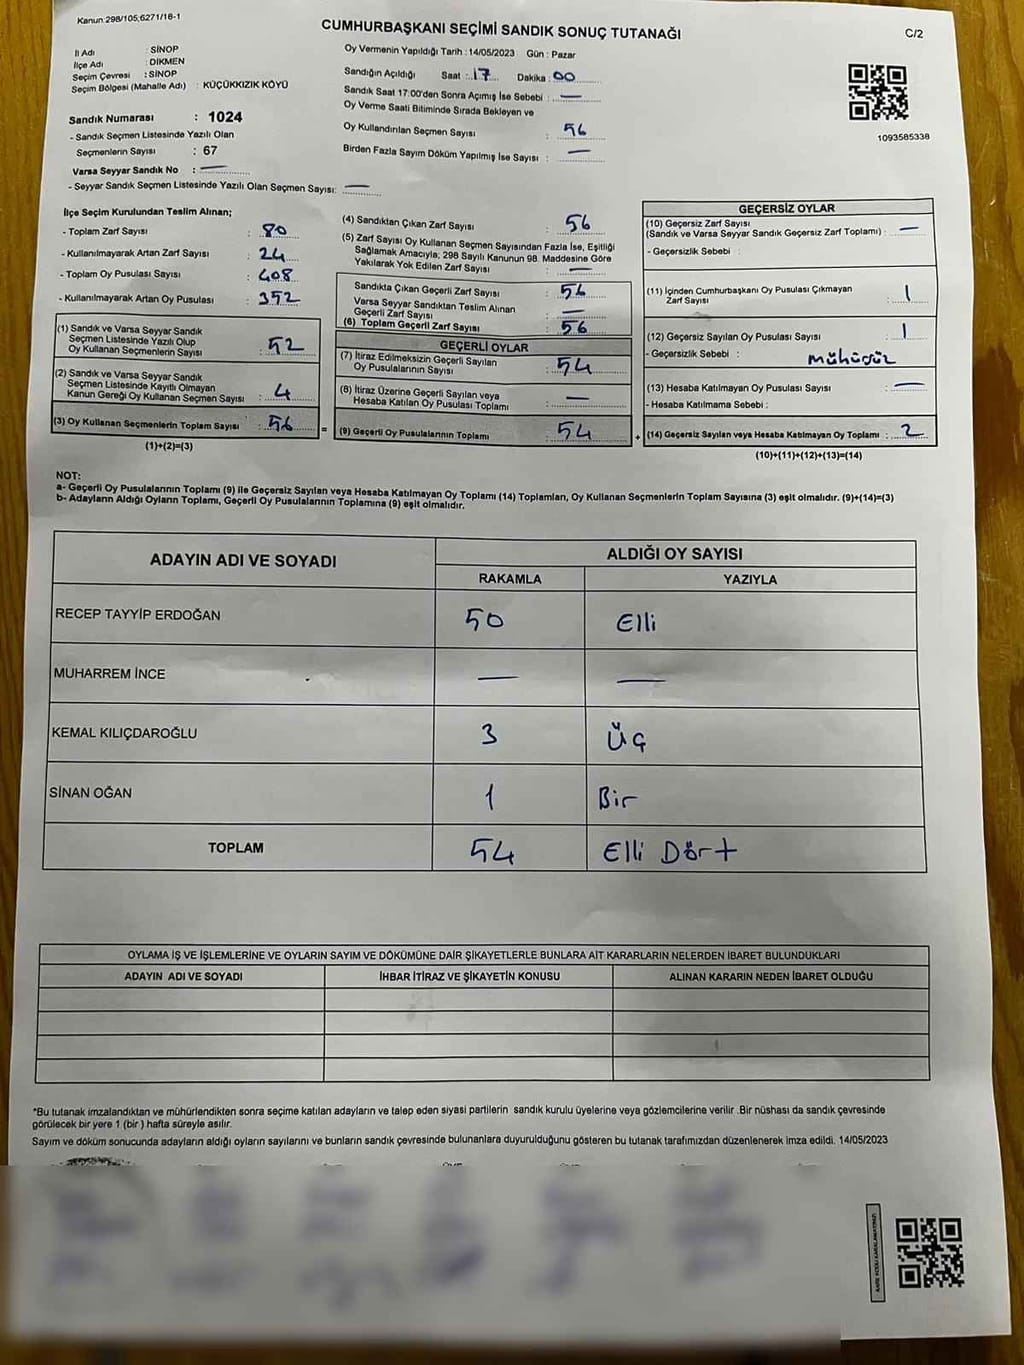 Kanun:298/105;6271/16-1
CUMHURBAŞKANI SEÇİMİ SANDIK SONUÇ TUTANAĞI
C/2
İl Adı : SİNOP
İlçe Adı : DİKMEN
Seçim Çevresi : SİNOP
Seçim Bölgesi (Mahalle Adı) : KÜÇÜKKIZIK KÖYÜ
Sandık Numarası : 1024
- Sandık Seçmen Listesinde Yazılı Olan
Seçmenlerin Sayısı : 67
Varsa Seyyar Sandık No : —
- Seyyar Sandık Seçmen Listesinde Yazılı Olan Seçmen Sayısı: —
Oy Vermenin Yapıldığı Tarih : 14/05/2023 Gün : Pazar
Sandığın Açıldığı Saat : 17 Dakika : 00
Sandık Saat 17:00'den Sonra Açımış İse Sebebi : —
Oy Verme Saati Bitiminde Sırada Bekleyen ve
Oy Kullandırılan Seçmen Sayısı : 56
Birden Fazla Sayım Döküm Yapılmış İse Sayısı : —
1093585338
İlçe Seçim Kurulundan Teslim Alınan;
- Toplam Zarf Sayısı : 80
- Kullanılmayarak Artan Zarf Sayısı : 24
- Toplam Oy Pusulası Sayısı : 408
- Kullanılmayarak Artan Oy Pusulası : 352
(1) Sandık ve Varsa Seyyar Sandık
Seçmen Listesinde Yazılı Olup
Oy Kullanan Seçmenlerin Sayısı : 52
(2) Sandık ve Varsa Seyyar Sandık
Seçmen Listesinde Kayıtlı Olmayan
Kanun Gereği Oy Kullanan Seçmen Sayısı : 4
(3) Oy Kullanan Seçmenlerin Toplam Sayısı : 56
(1)+(2)=(3)
=
(4) Sandıktan Çıkan Zarf Sayısı : 56
(5) Zarf Sayısı Oy Kullanan Seçmen Sayısından Fazla İse, Eşitliği
Sağlamak Amacıyla; 298 Sayılı Kanunun 98. Maddesine Göre
Yakılarak Yok Edilen Zarf Sayısı : —
Sandıkta Çıkan Geçerli Zarf Sayısı : 56
Varsa Seyyar Sandıktan Teslim Alınan
Geçerli Zarf Sayısı : —
(6) Toplam Geçerli Zarf Sayısı : 56
GEÇERLİ OYLAR
(7) İtiraz Edilmeksizin Geçerli Sayılan
Oy Pusulalarının Sayısı : 54
(8) İtiraz Üzerine Geçerli Sayılan veya
Hesaba Katılan Oy Pusulası Toplamı : —
(9) Geçerli Oy Pusulalarının Toplamı : 54
+
GEÇERSİZ OYLAR
(10) Geçersiz Zarf Sayısı
(Sandık ve Varsa Seyyar Sandık Geçersiz Zarf Toplamı) : —
- Geçersizlik Sebebi :
(11) İçinden Cumhurbaşkanı Oy Pusulası Çıkmayan
Zarf Sayısı : 1
(12) Geçersiz Sayılan Oy Pusulası Sayısı : 1
- Geçersizlik Sebebi : mühürsüz
(13) Hesaba Katılmayan Oy Pusulası Sayısı : —
- Hesaba Katılmama Sebebi :
(14) Geçersiz Sayılan veya Hesaba Katılmayan Oy Toplamı : 2
(10)+(11)+(12)+(13)=(14)
NOT:
a- Geçerli Oy Pusulalarının Toplamı (9) ile Geçersiz Sayılan veya Hesaba Katılmayan Oy Toplamı (14) Toplamları, Oy Kullanan Seçmenlerin Toplam Sayısına (3) eşit olmalıdır. (9)+(14)=(3)
b- Adayların Aldığı Oyların Toplamı, Geçerli Oy Pusulalarının Toplamına (9) eşit olmalıdır.
ADAYIN ADI VE SOYADI
ALDIĞI OY SAYISI
RAKAMLA YAZIYLA
RECEP TAYYİP ERDOĞAN 50 Elli
MUHARREM İNCE — —
KEMAL KILIÇDAROĞLU 3 Üç
SİNAN OĞAN 1 Bir
TOPLAM 54 Elli Dört
OYLAMA İŞ VE İŞLEMLERİNE VE OYLARIN SAYIM VE DÖKÜMÜNE DAİR ŞİKAYETLERLE BUNLARA AİT KARARLARIN NELERDEN İBARET BULUNDUKLARI
ADAYIN ADI VE SOYADI İHBAR İTİRAZ VE ŞİKAYETİN KONUSU ALINAN KARARIN NEDEN İBARET OLDUĞU
*Bu tutanak imzalandıktan ve mühürlendikten sonra seçime katılan adayların ve talep eden siyasi partilerin sandık kurulu üyelerine veya gözlemcilerine verilir .Bir nüshası da sandık çevresinde
görülecek bir yere 1 (bir ) hafta süreyle asılır.
Sayım ve döküm sonucunda adayların aldığı oyların sayılarını ve bunların sandık çevresinde bulunanlara duyurulduğunu gösteren bu tutanak tarafımızdan düzenlenerek imza edildi. 14/05/2023